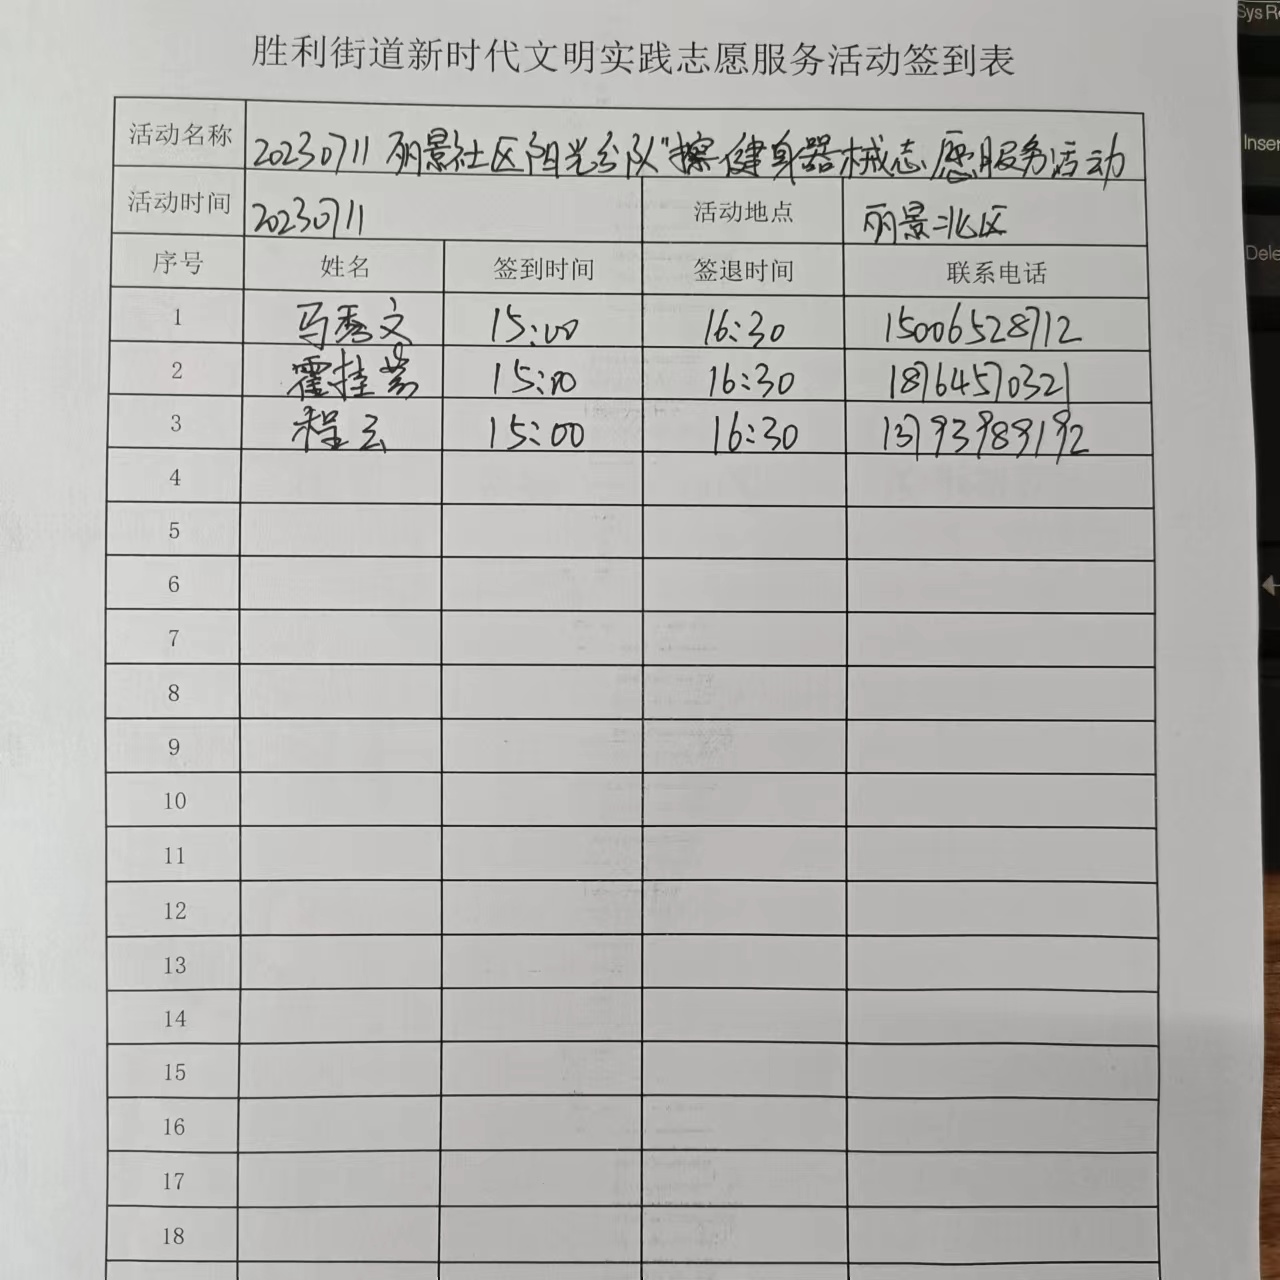 胜利街道新时代文明实践志愿服务活动签到表
活动名称 20230711 丽景社区阳光分队"擦健身器械志愿服务活动
活动时间 20230711 活动地点 丽景北区
序号 姓名 签到时间 签退时间 联系电话
1 马秀文 15:00 16:30 15006528712
2 霍桂 15:00 16:30 18764570321
3 程云 15:00 16:30 13793989192
4
5
6
7
8
9
10
11
12
13
14
15
16
17
18
Sys R
Inser
Dele